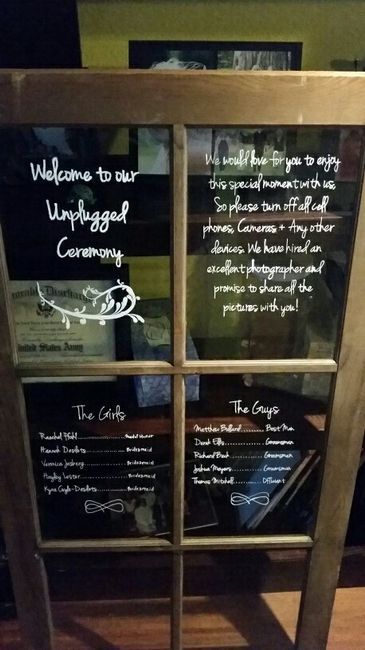 Welcome to our
Unplugged
Ceremony
We would love for you to enjoy
this special moment with us.
So please turn off all cell
phones, Cameras + Any other
devices. We have hired an
excellent photographer and
promise to share all the
pictures with you!
Discharge
United States Army
The Girls
Maid of Honor
Hannah Deslorts........Bridesmaid
Veronica........Bridesmaid
Hayley Lester........Bridesmaid
Kyra Coyle-Deslorts........Bridesmaid
The Guys
Matthew Bullard........Best Man
Derek Ellis........Groomsman
Richard Bush........Groomsman
Joshua Mayers........Groomsman
Thomas Mitchell........Officiant